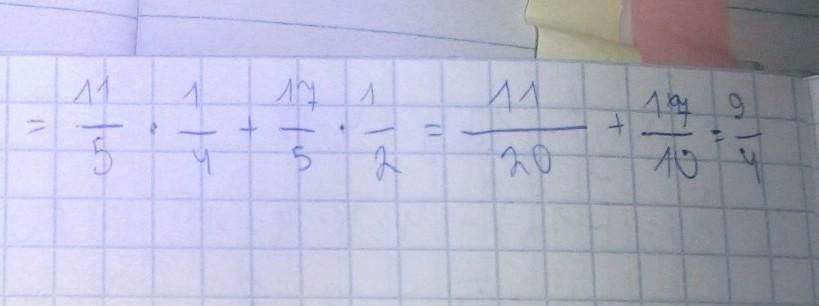 = 11/5 · 1/4 + 17/5 · 1/2 = 11/20 + 17/10 = 9/4